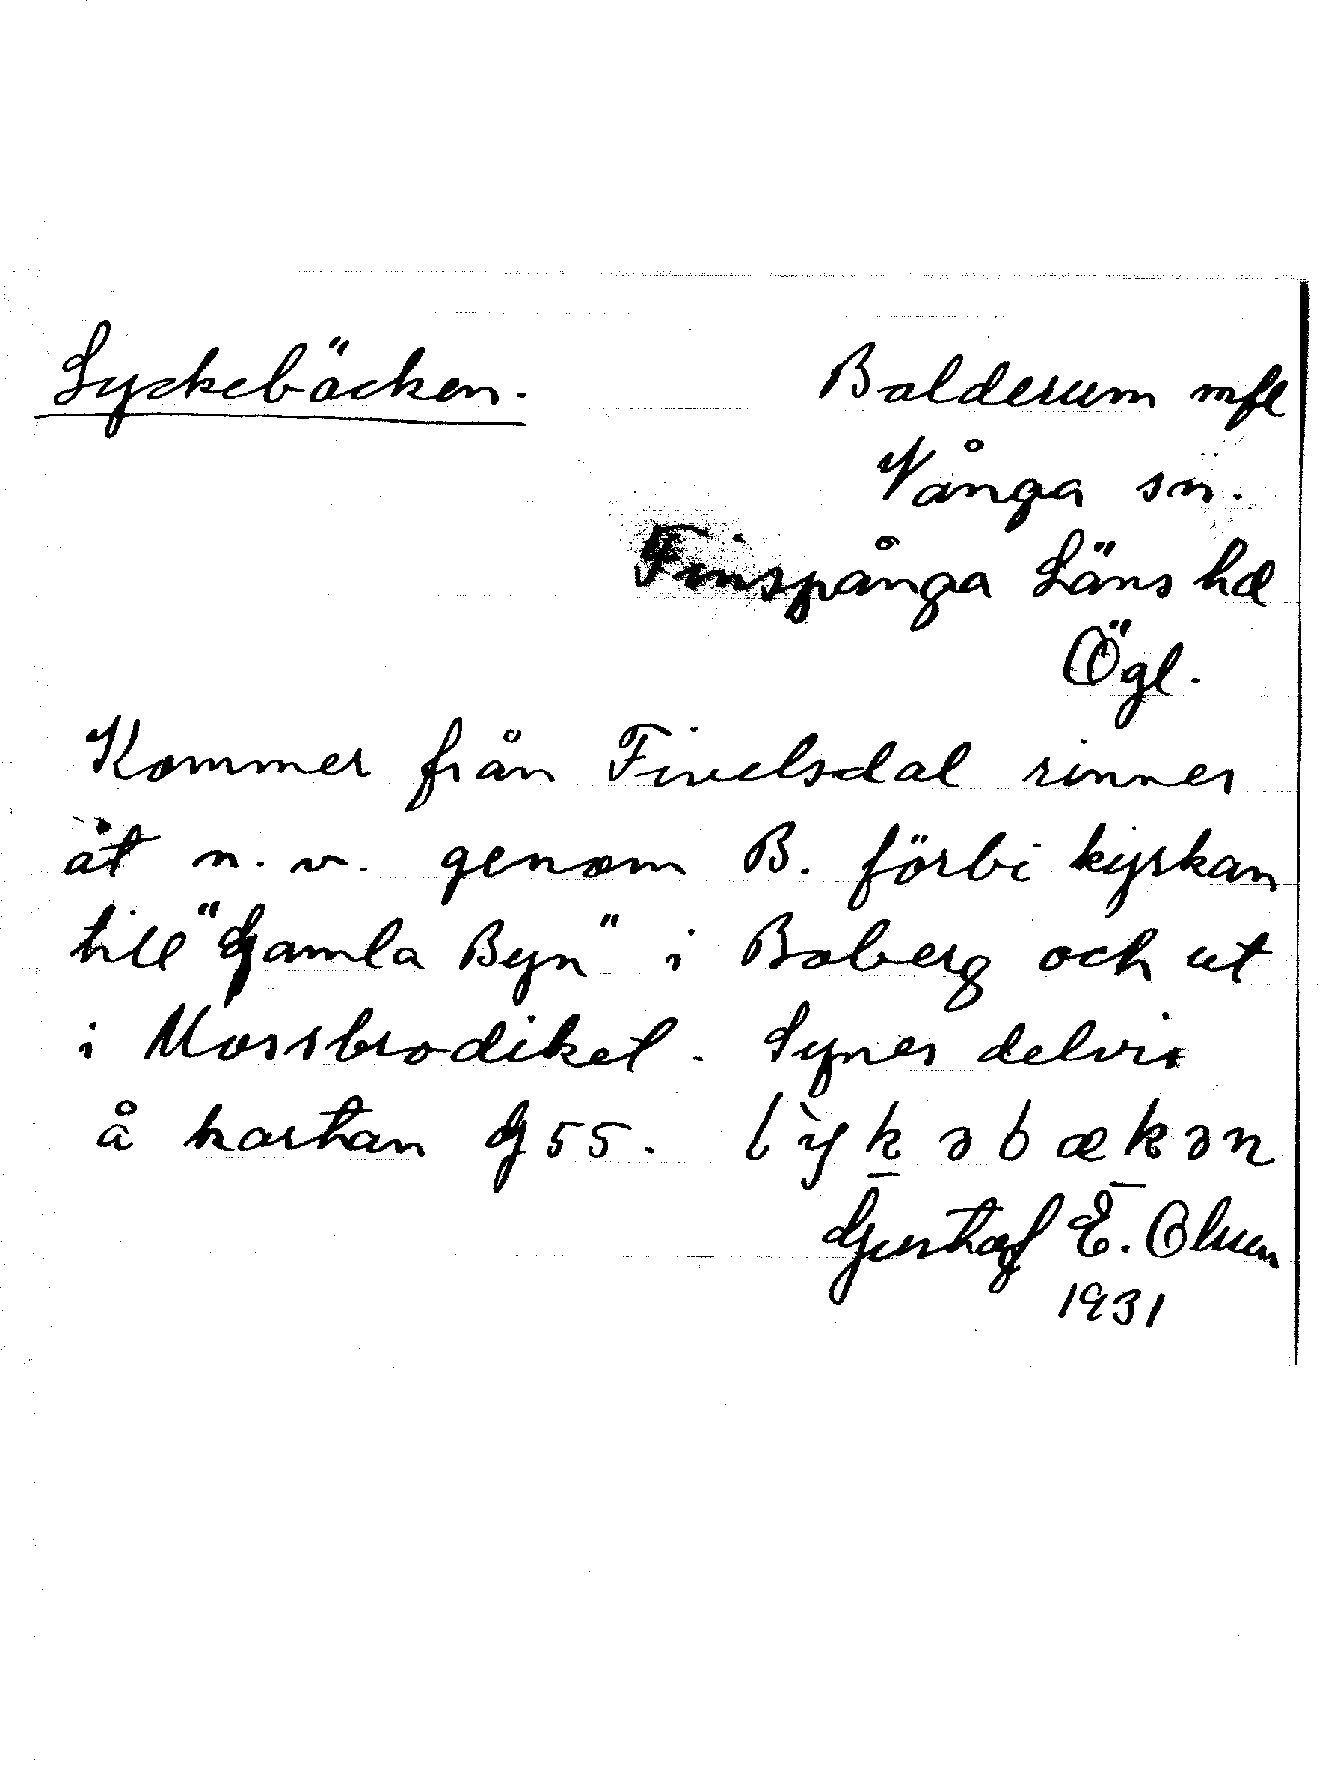 Lyckebäcken.
Balderum mfl
Vånga sn.
Finspånga Läns hd
Ögl.
Kommer från Fivelsdal rinner
åt n. v. genom B. förbi kyrkan
till "Gamla Byn" i Boberg och ut
i Mossbrodiket. Synes delvis
å kartan G 55. lỳk̲əbæk̲ən
Gustaf E. Olsson
1931